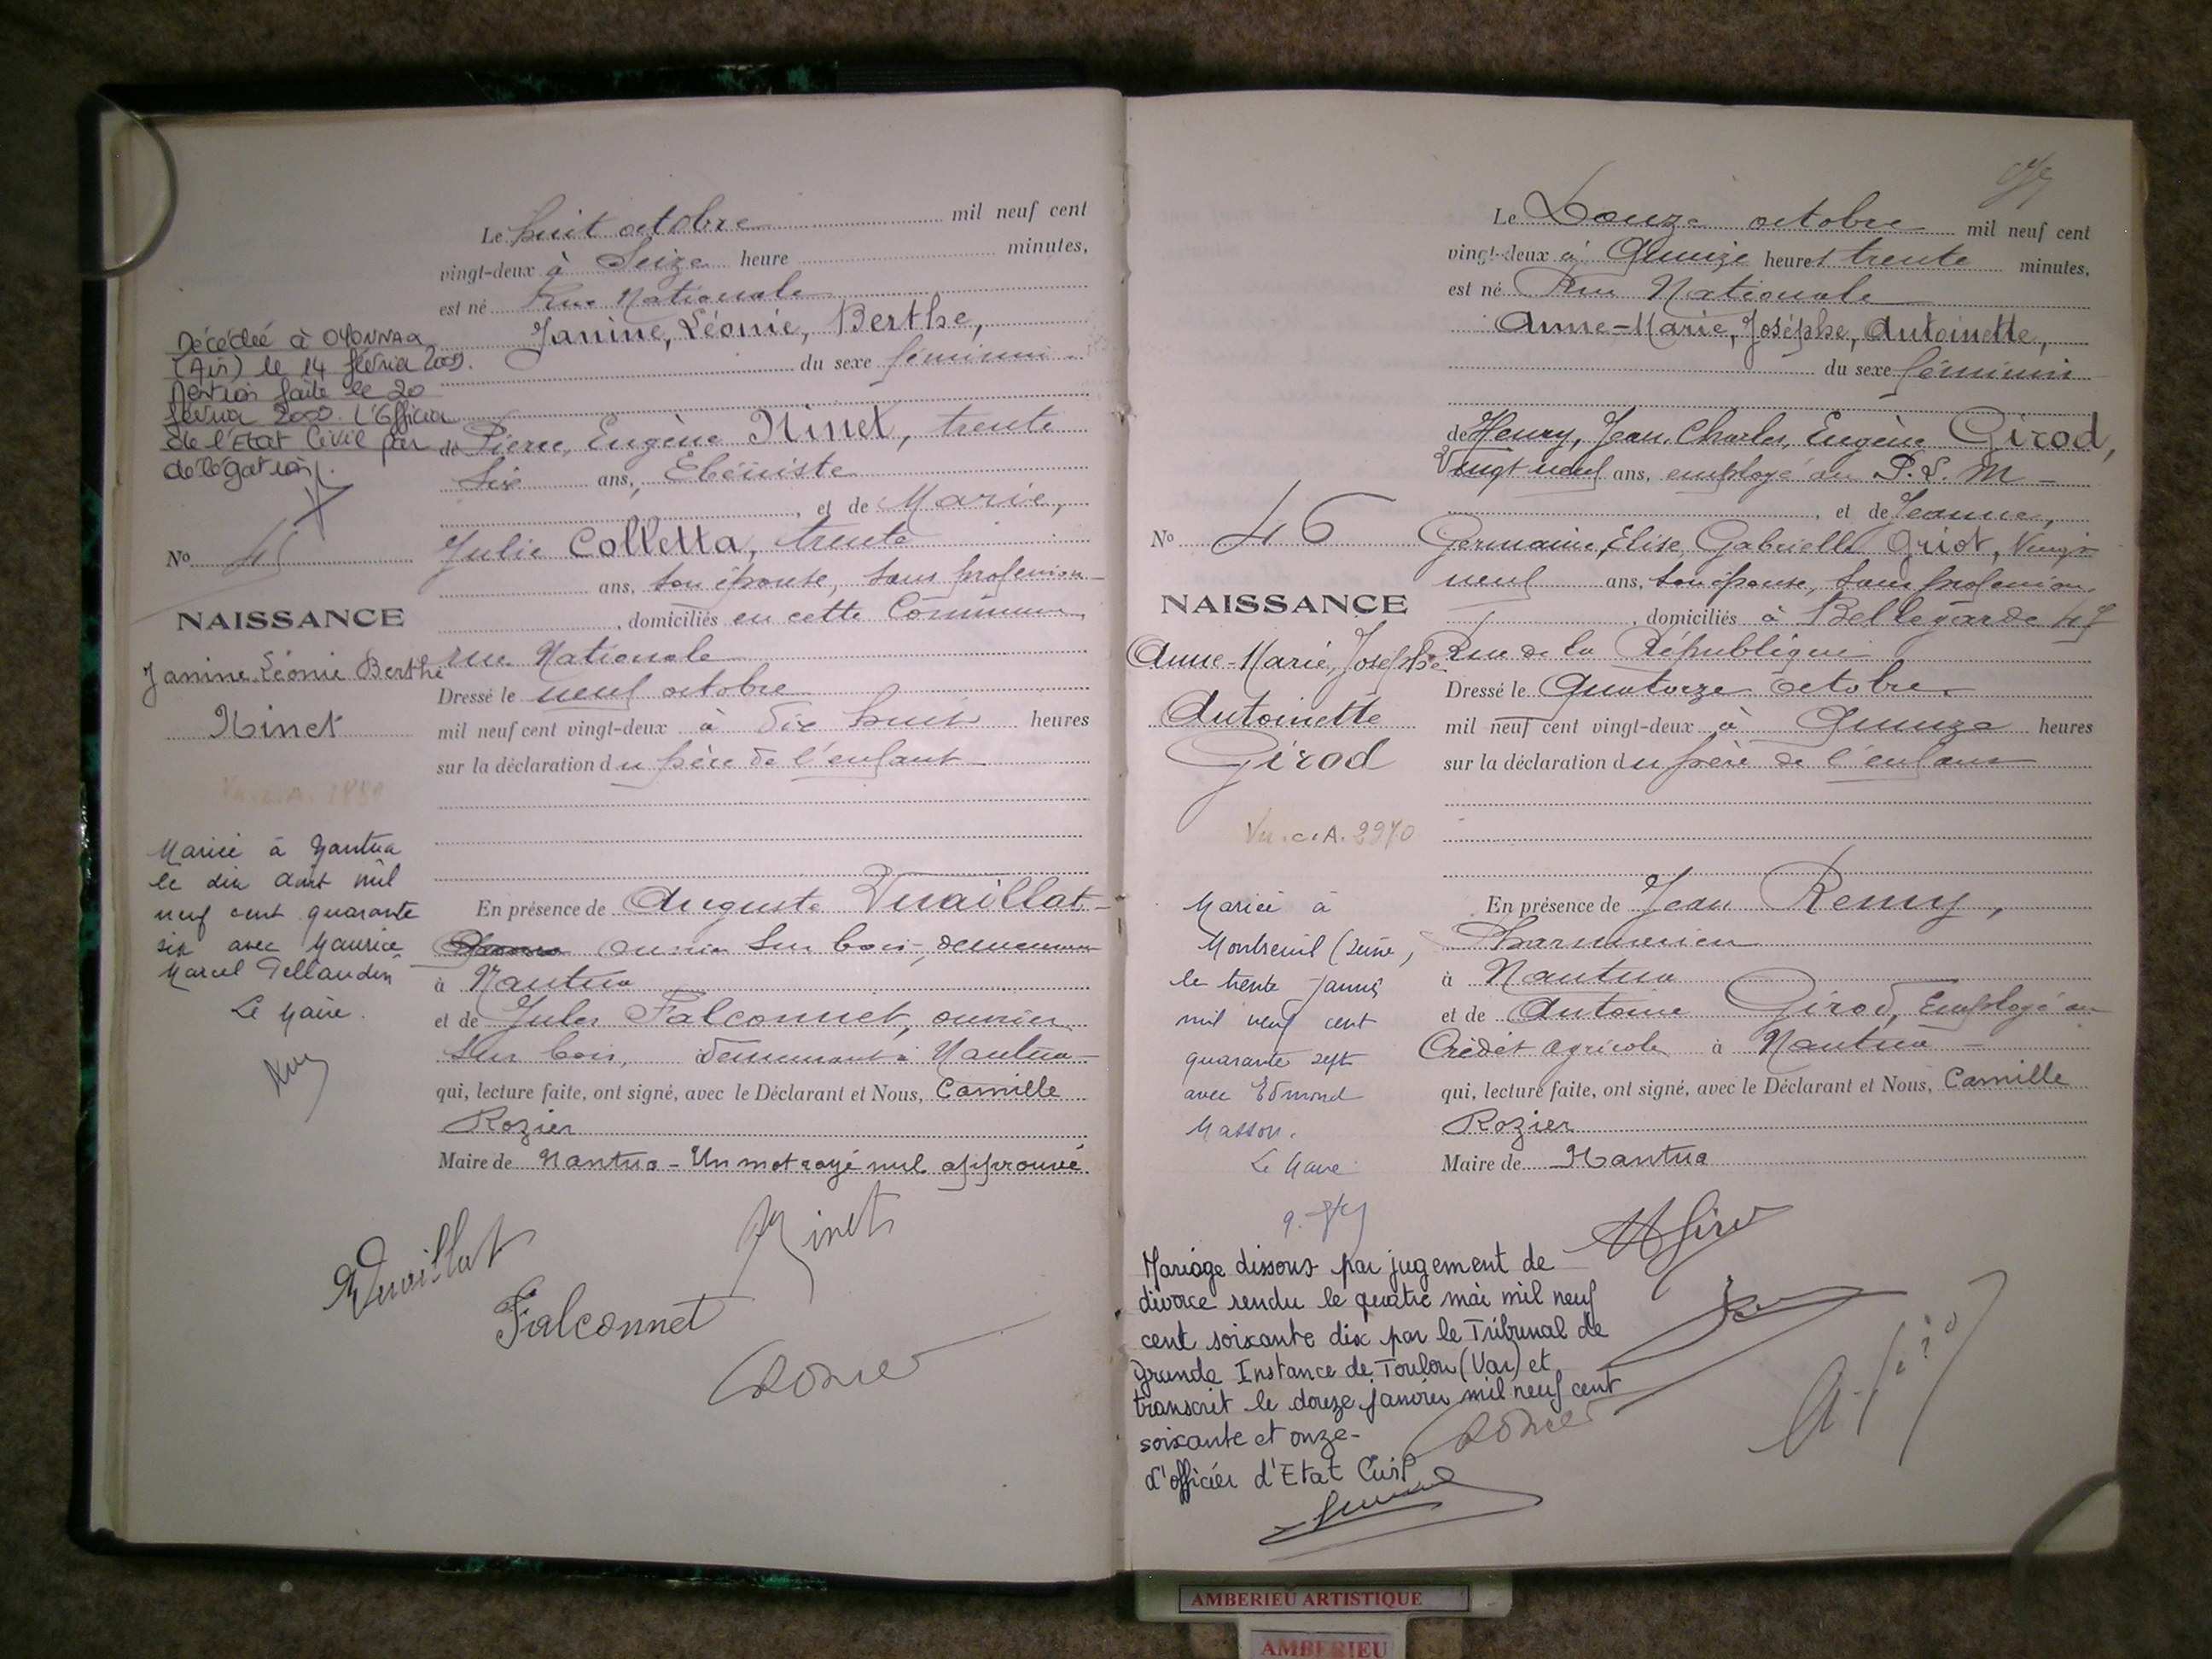 Le huit octobre mil neuf cent
vingt-deux à Seize heure minutes,
est né Rue Nationale
Janine, Léonie, Berthe,
du sexe féminin
de Pierre, Eugène Ninet, trente
Six ans, Ébéniste
, et de Marie,
Julie Colletta, trente
ans, son épouse, sans profession
, domiciliés en cette Commune,
rue Nationale
Dressé le neuf octobre
mil neuf cent vingt-deux à dix huit heures
sur la déclaration du père de l'enfant
En présence de Auguste Vuaillat
ouvrier sur bois, demeurant
à Nantua
et de Jules Falconnet, ouvrier
sur bois, demeurant à Nantua
qui, lecture faite, ont signé, avec le Déclarant et Nous, Camille
Rozier
Maire de Nantua - Un mot rayé nul approuvé.
Vuaillat
Ninet
Falconnet
Rozier
Décédée à OYONNAX
(Ain) le 14 février
Mention faite le 20
février L'Officier
de l'Etat Civil par
délégation.
No 45
NAISSANCE
Janine Léonie Berthe
Ninet
Mariée à Nantua
le dix août mil
neuf cent quarante
six avec Maurice
Marcel Pellaudin
Le Maire.
Le Douze octobre mil neuf cent
vingt-deux à Quinze heures trente minutes,
est né Rue Nationale
Anne-Marie, Josèphe, Antoinette,
du sexe féminin
de Henry, Jean, Charles, Eugène Girod,
Vingt neuf ans, employé au P. L. M
, et de Jeanne,
Germaine, Elise, Gabrielle Griot, Vingt
neuf ans, son épouse, sans profession
, domiciliés à Bellegarde 47
Rue de la République
Dressé le Quatorze octobre
mil neuf cent vingt-deux à Quinze heures
sur la déclaration du père de l'enfant
En présence de Jean Remy,
Pharmacien
à Nantua
et de Antoine Girod, Employé au
Crédit agricole à Nantua
qui, lecture faite, ont signé, avec le Déclarant et Nous, Camille
Rozier
Maire de Nantua
No 46
NAISSANCE
Anne-Marie, Josèphe
Antoinette
Girod
Vu. C.A. 2970
Mariée à
Montreuil (Seine,
le trente
mil neuf cent
quarante sept
avec Edmond
Masson.
Le Maire
Mariage dissous par jugement de
divorce rendu le quatre mai mil neuf
cent soixante dix par le Tribunal de
Grande Instance de Toulon (Var) et
transcrit le douze janvier mil neuf cent
soixante et onze-
d'officier d'Etat Civil
Rozier
AMBERIEU ARTISTIQUE
AMBERIEU